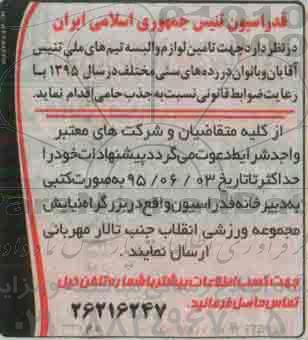 فدراسیون تنیس جمهوری اسلامی ایران
در نظر دارد جهت تامین لوازم و البسه تیم های ملی تنیس
آقایان و بانوان در رده های سنی مختلف در سال ۱۳۹۵ با
رعایت ضوابط قانونی نسبت به جذب حامی اقدام نماید.
از کلیه متقاضیان و شرکت های معتبر
واجد شرایط دعوت می گردد پیشنهادات خود را
حداکثر تا تاریخ ۰۳ / ۰۶ / ۹۵ به صورت کتبی
به دبیرخانه فدراسیون واقع در بزرگراه نیایش
مجموعه ورزشی انقلاب جنب تالار مهربانی
ارسال نمایند.
جهت کسب اطلاعات بیشتر با شماره تلفن ذیل
تماس حاصل فرمائید.
۲۶۲۱۶۲۴۷